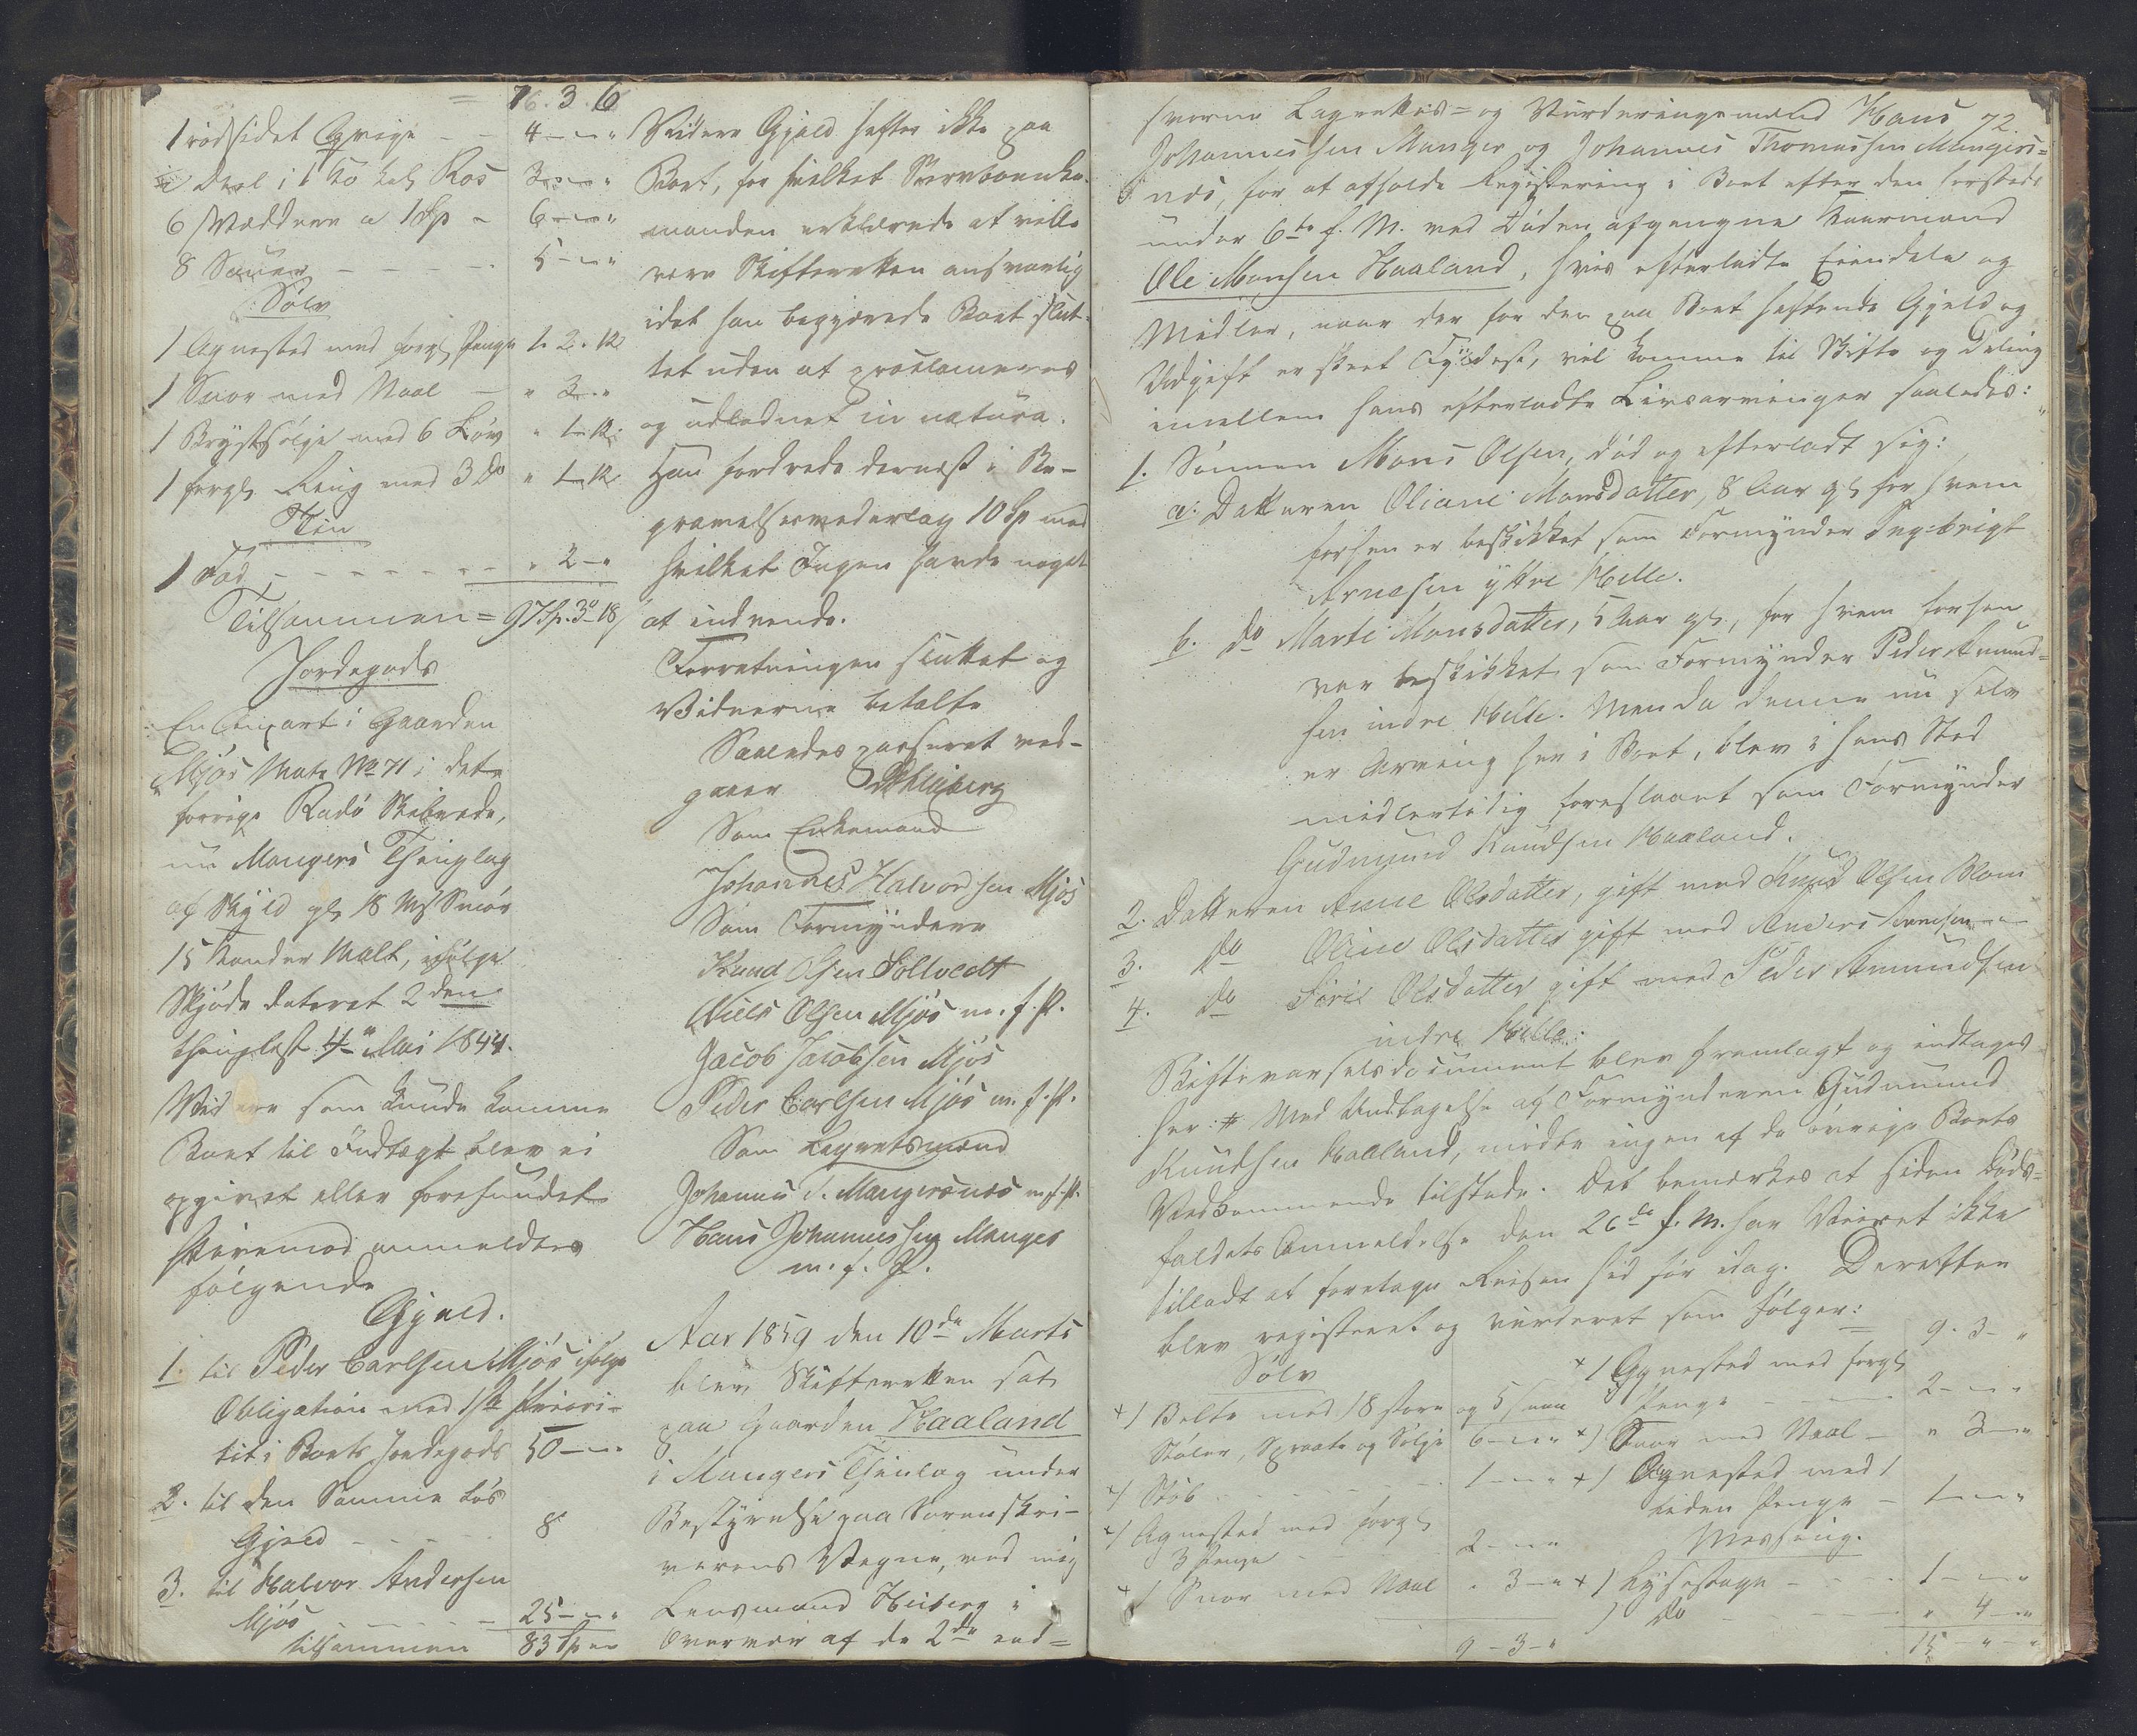 = 76. 3. 6
1 rødsidet Qvige - - 4 - " - "
Deel i 1 Ko kal Ros 3 - " - "
6 Væddere a 1 Sp - 6 - " - "
8 Sauer - - - - 5 - " - "
Sølv
1 Agnested med forgl Penge 1. 2. 12
1 Snor med Naal - " 3 - "
1 Brystsølje med 6 Løv " 1 - 12
1 forgl Ring med 3 Do " 1 - 12
Tin
1 Fad - - - - - - - - " 2 - "
Tilsammen = 97 Sp. 3 - 18
Jordegods
En Anpart i Gaarden
Mjøs Matr No 71 i det
forrige Radø Skibrede,
nu Mangers Thinglag
af Skyld gl 18 Mf Smør
15 Kander Malt, ifølge
Skjøde dateret 2den
thinglæst 4de Mai 1844.
Videre som kunde komme
Boet til Indtægt blev ei
opgivet eller forefundet
Hvorimod anmeldtes
følgende
Gjæld.
1. til Peder Carlsen Mjøs ifølge
Obligation med 1ste Priori-
tet i Boets Jordegods 50 - " - "
2. til den Samme løs
Gjæld - - - 8
3. til Halvor Andersen
Mjøs - - - - 25 - " - "
tilsammen 83 Sp " "
Videre Gjæld hefter ikke paa
Boet, for hvilket Stervboenke-
manden erklærede at ville
være Skifteretten ansvarlig
idet han begjærede Boet slut-
tet uden at proclameres
og udlodnet in natura.
Han fordrede dernæst i Be-
gravelsesvederlag 10 Sp mod
hvilket Ingen havde noget
at indvende.
Forretningen sluttet og
Vidnerne betalte
Saaledes passeret ved-
gaaer Heiberg
Som Enkemand
Johannes Halvordsen Mjøs
Som Formyndere
Knud Olsen Soltvedt
Niels Olsen Mjøs m. f. P.
Jacob Jacobsen Mjøs
Peder Carlsen Mjøs m. f. P.
Som Lagretsmænd
Johannes T. Mangersnæs m. f. P.
Hans Johannessen Manger
m. f. P.
Aar 1859 den 10de Marts
blev Skifteretten sat
paa Gaarden Haaland
i Mangers Thinlag under
Bestyrelse paa Sorenskri-
verens Vegne, ved mig
Lensmand Heiberg i
Overvær af de 2de eed=
72.
svorne Lagrettes= og Vurderingsmænd Hans
Johannessen Manger og Johannes Thomassen Mangers=
næs, for at afholde Registrering i Boet efter den herstede
under 6te f. M. ved Døden afgangne Kaarmand
Ole Monsen Haaland, hvis efterladte Eiendele og
Midler, naar der for den paa Boet heftende Gjæld og
Udgift er skeet Fyldest, vil komme til Skifte og Deling
imellem hans efterladte Livsarvinger saaledes:
1. Sønnen Mons Olsen, død og efterladt sig:
a. Datteren Oliane Monsdatter, 8 Aar gl for hvem
forhen er beskikket som Formynder Ingebrigt
Arnesen yttre Helle.
b. do Marte Monsdatter, 5 Aar gl, for hvem forhen
var beskikket som Formynder Peder Amund=
sen indre Helle. Men da denne nu selv
er Arving her i Boet, blev i hans Sted
midlertidig foreslaaet som Formynder
Gudmund Knudsen Haaland.
2. Datteren Anne Olsdatter, gift med Knud Olsen
3. do Oline Olsdatter gift med Anders
4. do Siri Olsdatter gift med Peder Amundsen
indre Helle.
Skiftevarselsdocument blev fremlagt og indtages
her # Med Undtagelse af Formynderen Gudmund
Knudsen Haaland, mødte ingen af de øvrige Boets
Vedkommende tilstede. Det bemærkes at siden Døds=
faldets Anmeldelse den 26de f. M. har Veiret ikke
tilladt at foretage Reisen hid før idag. Derefter
blev registreret og vurderet som følger:
Sølv
+ 1 Belte med 18 store og 5 smaa
Støler, Sproote og Sølje 6 - " - "
+ 1 Støb - - - - - 1 - " - "
+ 1 Agnested med forgl
3 Penge - - - 2 - " - "
+ 1 Snor med Naal " 3 - "
9 - 3 - "
9. 3 - "
+ 1 Agnested med forgl
Penge - - - - 2 - " - "
+ 1 Snor med Naal - " 3 - "
+ 1 Agnested med 1
liden Penge - 1 - " - "
Messing.
+ 1 Lysestage - - - 1 - " - "
1 do - - - - " 4 - "
15 - " - "